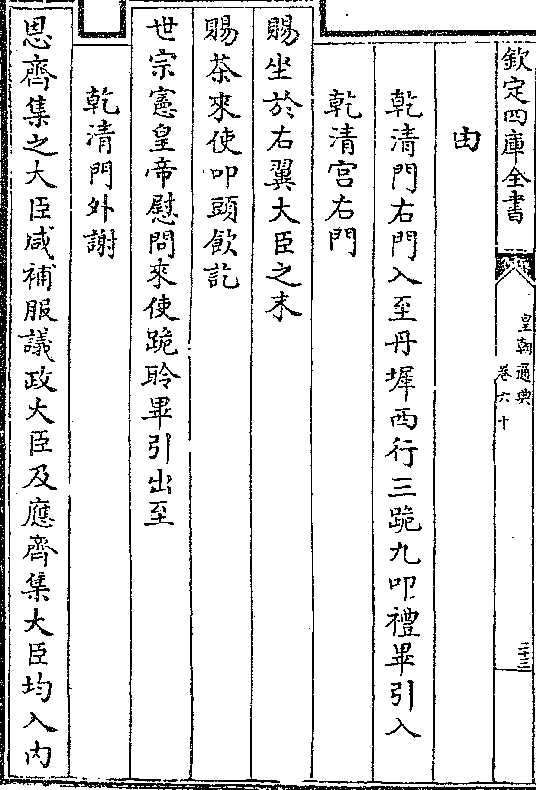 欽定四庫全書
皇朝通典
卷六十
三十三
由
乾清門右門入至丹墀西行三跪九叩禮畢引入
乾清宮右門
賜坐於右翼大臣之末
賜茶來使叩頭飲訖
世宗憲皇帝慰問來使跪聆畢引出至
乾清門外謝
恩齊集之大臣咸補服議政大臣及應齊集大臣均入內